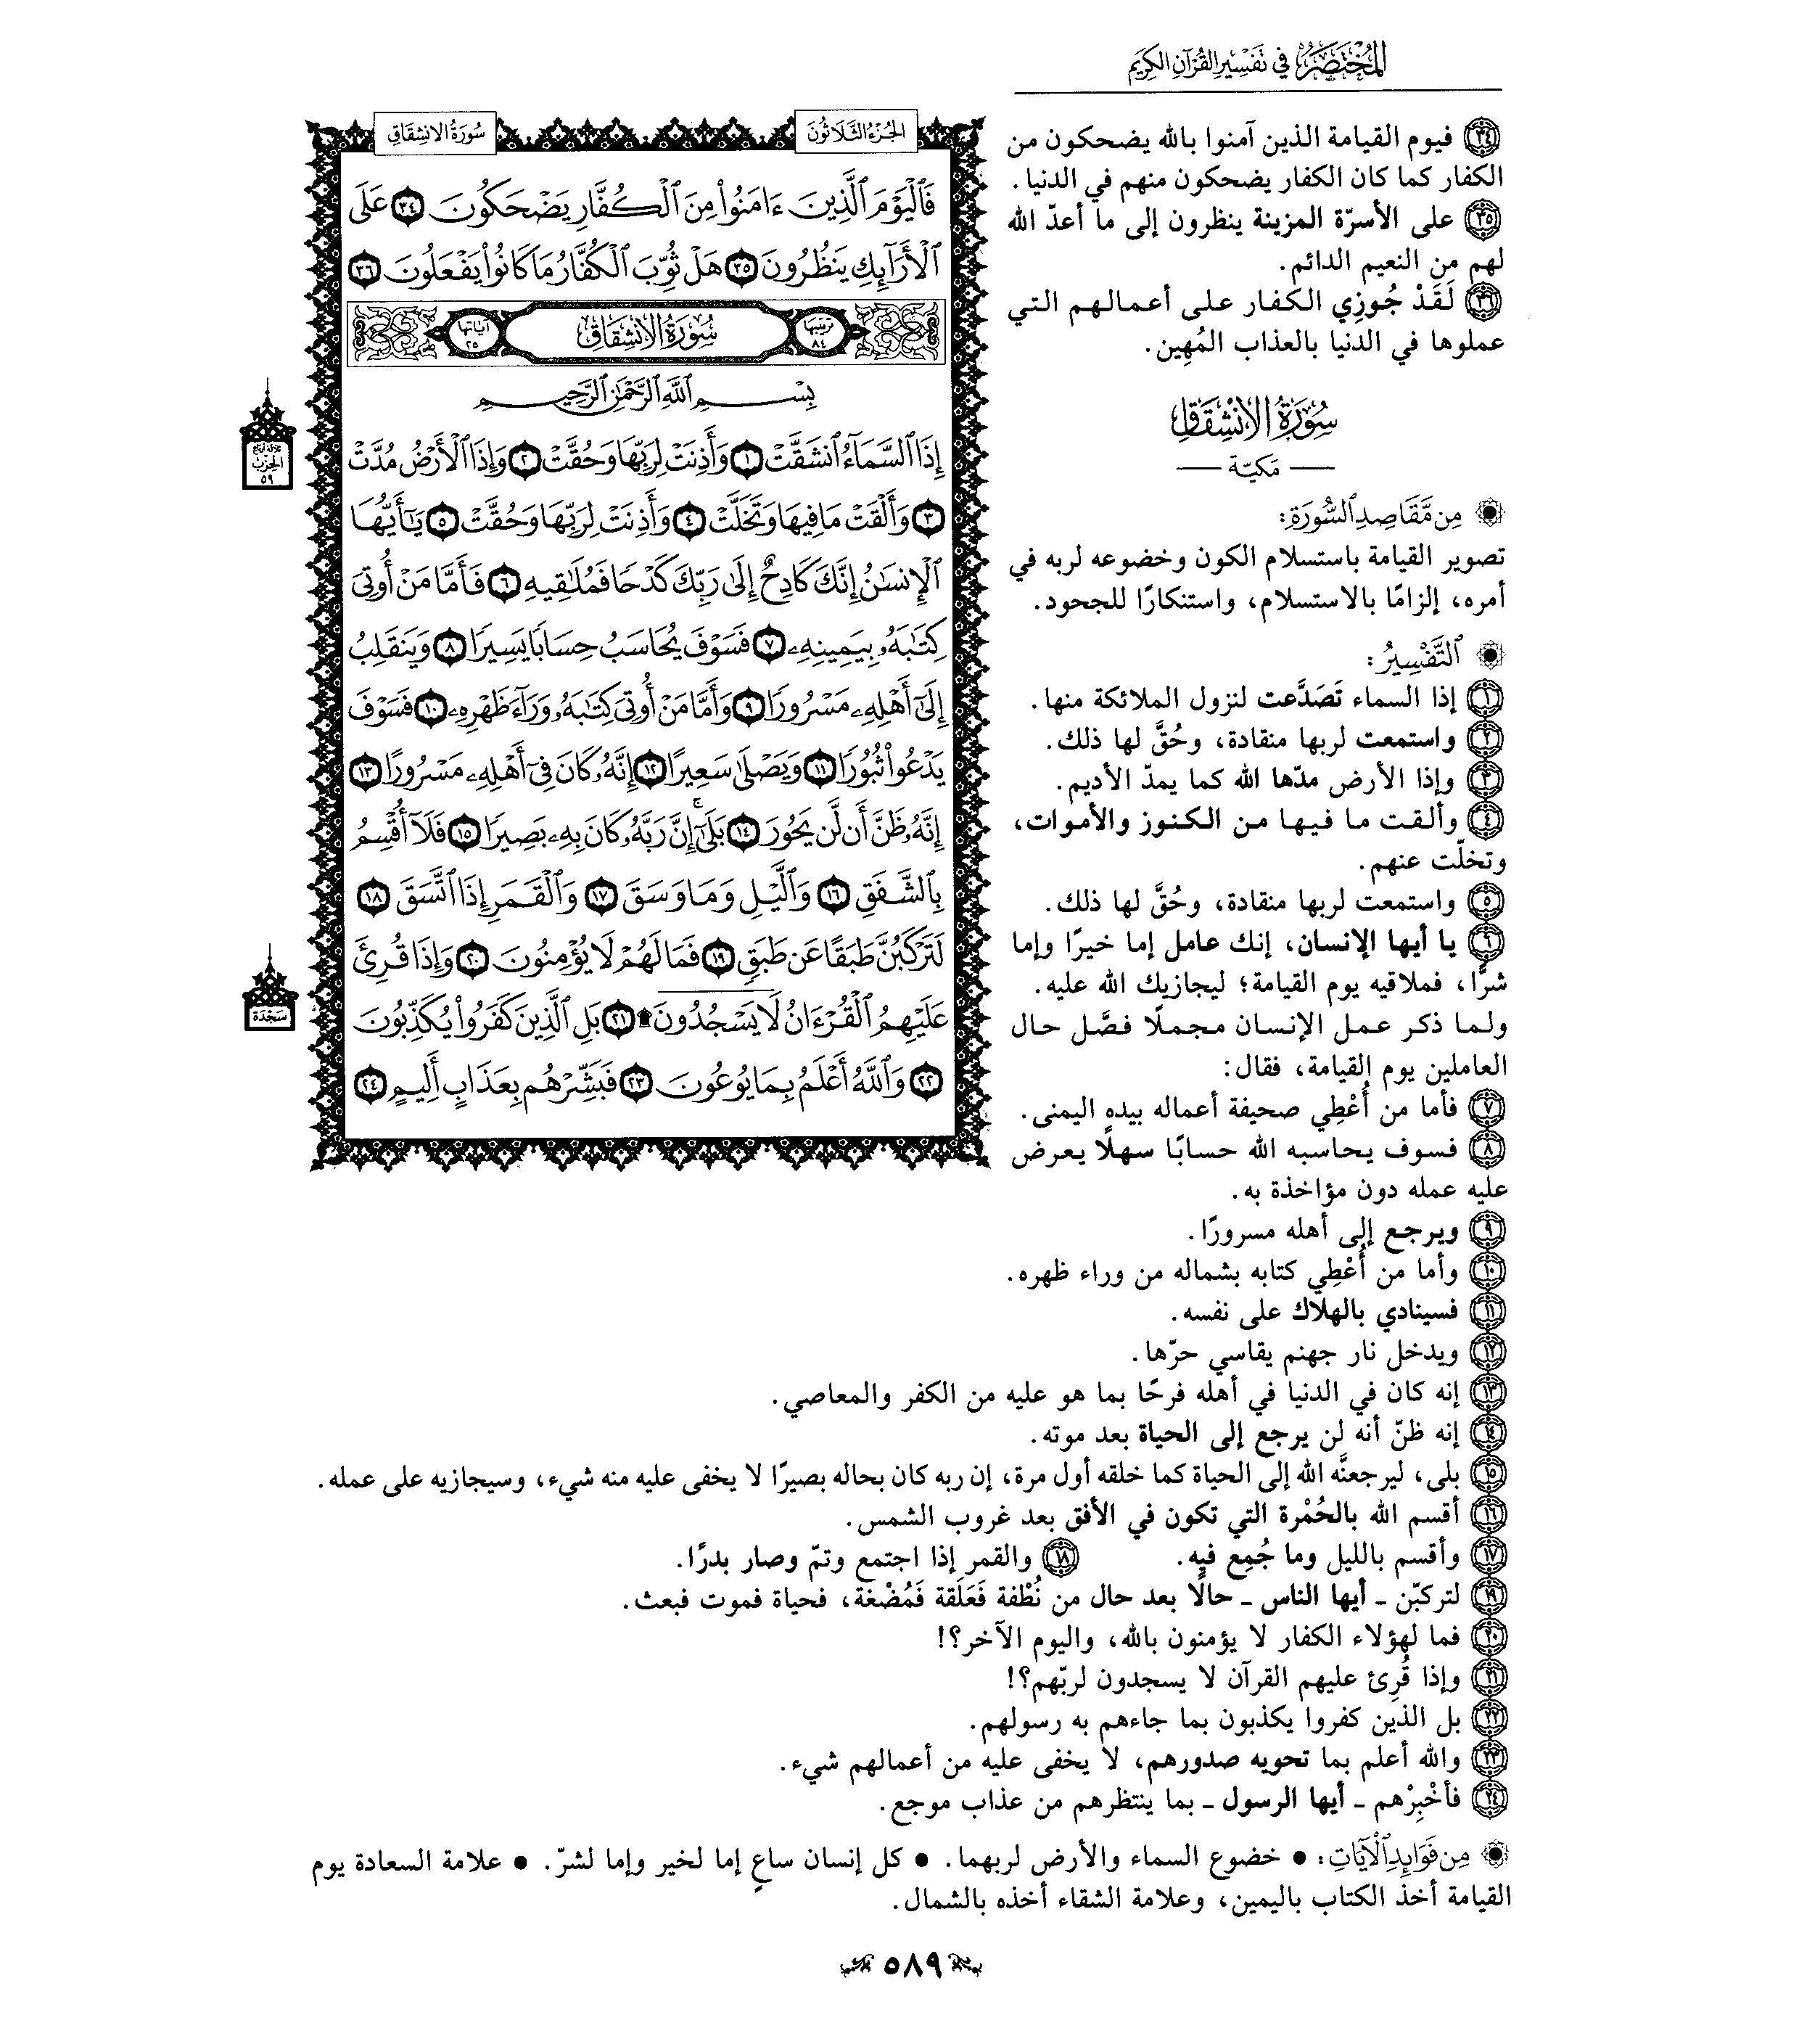 المُخْتَصَرُ في تَفْسِيرِ القُرْآنِ الكَرِيم
﴿٣٤﴾ فيوم القيامة الذين آمنوا بالله يضحكون من
الكفار كما كان الكفار يضحكون منهم في الدنيا.
﴿٣٥﴾ على الأسرّة المزينة ينظرون إلى ما أعدّ الله
لهم من النعيم الدائم.
﴿٣٦﴾ لَقَدْ جُوزِي الكفار على أعمالهم التي
عملوها في الدنيا بالعذاب المُهِين.
سُورَةُ الانْشِقَاقِ
— مَكيّة —
مِن مَّقَاصِدِ ٱلسُّورَةِ:
تصوير القيامة باستسلام الكون وخضوعه لربه في
أمره، إلزامًا بالاستسلام، واستنكارًا للجحود.
ٱلتَّفْسِيرُ:
﴿١﴾ إذا السماء تَصَدَّعت لنزول الملائكة منها.
﴿٢﴾ واستمعت لربها منقادة، وحُقَّ لها ذلك.
﴿٣﴾ وإذا الأرض مدّها الله كما يمدّ الأديم.
﴿٤﴾ وألقت ما فيها من الكنوز والأموات،
وتخلّت عنهم.
﴿٥﴾ واستمعت لربها منقادة، وحُقَّ لها ذلك.
﴿٦﴾ يا أيها الإنسان، إنك عامل إما خيرًا وإما
شرًّا، فملاقيه يوم القيامة؛ ليجازيك الله عليه.
ولما ذكر عمل الإنسان مجملًا فصَّل حال
العاملين يوم القيامة، فقال:
﴿٧﴾ فأما من أُعْطِي صحيفة أعماله بيده اليمنى.
﴿٨﴾ فسوف يحاسبه الله حسابًا سهلًا يعرض
عليه عمله دون مؤاخذة به.
﴿٩﴾ ويرجع إلى أهله مسرورًا.
﴿١٠﴾ وأما من أُعْطِي كتابه بشماله من وراء ظهره.
﴿١١﴾ فسينادي بالهلاك على نفسه.
﴿١٢﴾ ويدخل نار جهنم يقاسي حرّها.
﴿١٣﴾ إنه كان في الدنيا في أهله فرحًا بما هو عليه من الكفر والمعاصي.
﴿١٤﴾ إنه ظنّ أنه لن يرجع إلى الحياة بعد موته.
﴿١٥﴾ بلى، ليرجعنَّه الله إلى الحياة كما خلقه أول مرة، إن ربه كان بحاله بصيرًا لا يخفى عليه منه شيء، وسيجازيه على عمله.
﴿١٦﴾ أقسم الله بالحُمْرة التي تكون في الأفق بعد غروب الشمس.
﴿١٧﴾ وأقسم بالليل وما جُمِع فيه. ﴿١٨﴾ والقمر إذا اجتمع وتمّ وصار بدرًا.
﴿١٩﴾ لتركبّن ـ أيها الناس ـ حالًا بعد حال من نُطْفة فَعَلَقة فَمُضْغة، فحياة فموت فبعث.
﴿٢٠﴾ فما لهؤلاء الكفار لا يؤمنون بالله، واليوم الآخر؟!
﴿٢١﴾ وإذا قُرِئ عليهم القرآن لا يسجدون لربّهم؟!
﴿٢٢﴾ بل الذين كفروا يكذبون بما جاءهم به رسولهم.
﴿٢٣﴾ والله أعلم بما تحويه صدورهم، لا يخفى عليه من أعمالهم شيء.
﴿٢٤﴾ فأخْبِرْهم ـ أيها الرسول ـ بما ينتظرهم من عذاب موجع.
مِن فَوَائِدِ ٱلْآيَاتِ: • خضوع السماء والأرض لربهما. • كل إنسان ساعٍ إما لخير وإما لشرّ. • علامة السعادة يوم
القيامة أخذ الكتاب باليمين، وعلامة الشقاء أخذه بالشمال.
الجُزْءُ الثَّلَاثُونَ
سُورَةُ الانشِقَاقِ
فَٱلْيَوْمَ ٱلَّذِينَ ءَامَنُوا۟ مِنَ ٱلْكُفَّارِ يَضْحَكُونَ ﴿٣٤﴾ عَلَى
ٱلْأَرَآئِكِ يَنظُرُونَ ﴿٣٥﴾ هَلْ ثُوِّبَ ٱلْكُفَّارُ مَا كَانُوا۟ يَفْعَلُونَ ﴿٣٦﴾
ترتيبها ٨٤ سُورَةُ الانشِقَاقِ آياتها ٢٥
بِسْمِ ٱللَّهِ ٱلرَّحْمَٰنِ ٱلرَّحِيمِ
إِذَا ٱلسَّمَآءُ ٱنشَقَّتْ ﴿١﴾ وَأَذِنَتْ لِرَبِّهَا وَحُقَّتْ ﴿٢﴾ وَإِذَا ٱلْأَرْضُ مُدَّتْ
﴿٣﴾ وَأَلْقَتْ مَا فِيهَا وَتَخَلَّتْ ﴿٤﴾ وَأَذِنَتْ لِرَبِّهَا وَحُقَّتْ ﴿٥﴾ يَٰٓأَيُّهَا
ٱلْإِنسَٰنُ إِنَّكَ كَادِحٌ إِلَىٰ رَبِّكَ كَدْحًا فَمُلَٰقِيهِ ﴿٦﴾ فَأَمَّا مَنْ أُوتِىَ
كِتَٰبَهُۥ بِيَمِينِهِۦ ﴿٧﴾ فَسَوْفَ يُحَاسَبُ حِسَابًا يَسِيرًا ﴿٨﴾ وَيَنقَلِبُ
إِلَىٰٓ أَهْلِهِۦ مَسْرُورًا ﴿٩﴾ وَأَمَّا مَنْ أُوتِىَ كِتَٰبَهُۥ وَرَآءَ ظَهْرِهِۦ ﴿١٠﴾ فَسَوْفَ
يَدْعُوا۟ ثُبُورًا ﴿١١﴾ وَيَصْلَىٰ سَعِيرًا ﴿١٢﴾ إِنَّهُۥ كَانَ فِىٓ أَهْلِهِۦ مَسْرُورًا ﴿١٣﴾
إِنَّهُۥ ظَنَّ أَن لَّن يَحُورَ ﴿١٤﴾ بَلَىٰٓ ۚ إِنَّ رَبَّهُۥ كَانَ بِهِۦ بَصِيرًا ﴿١٥﴾ فَلَآ أُقْسِمُ
بِٱلشَّفَقِ ﴿١٦﴾ وَٱلَّيْلِ وَمَا وَسَقَ ﴿١٧﴾ وَٱلْقَمَرِ إِذَا ٱتَّسَقَ ﴿١٨﴾
لَتَرْكَبُنَّ طَبَقًا عَن طَبَقٍ ﴿١٩﴾ فَمَا لَهُمْ لَا يُؤْمِنُونَ ﴿٢٠﴾ وَإِذَا قُرِئَ
عَلَيْهِمُ ٱلْقُرْءَانُ لَا يَسْجُدُونَ ۩ ﴿٢١﴾ بَلِ ٱلَّذِينَ كَفَرُوا۟ يُكَذِّبُونَ
﴿٢٢﴾ وَٱللَّهُ أَعْلَمُ بِمَا يُوعُونَ ﴿٢٣﴾ فَبَشِّرْهُم بِعَذَابٍ أَلِيمٍ ﴿٢٤﴾
ثلاثة أرباع
الحزب
٥٩
سَجْدَة
٥٨٩